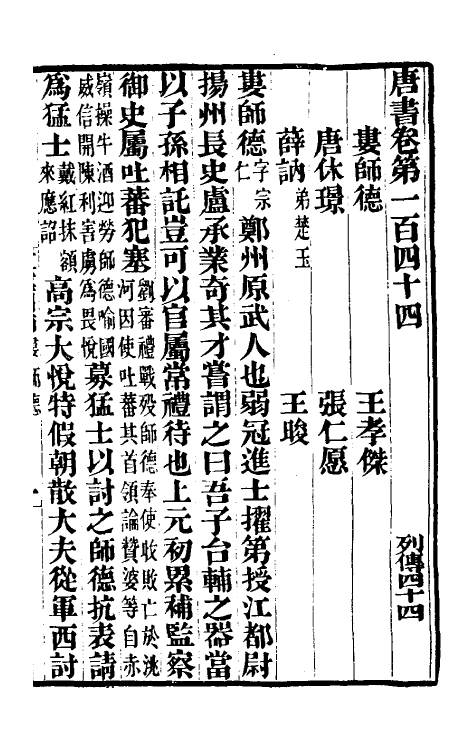 唐書卷第一百四十四 列傳四十四
婁師德 王孝傑
唐休璟 張仁愿
薛訥弟楚玉 王晙
婁師德字宗仁鄭州原武人也弱冠進士擢第授江都尉
揚州長史盧承業奇其才嘗謂之曰吾子台輔之器當
以子孫相託豈可以官屬常禮待也上元初累補監察
御史屬吐蕃犯塞劉審禮戰殁師德奉使收敗亡於洮河因使吐蕃其首領論贊婆等自赤
嶺操牛酒迎勞師德喻國威信開陳利害虜爲畏悅募猛士以討之師德抗表請
爲猛士戴紅抹額來應詔高宗大悅特假朝散大夫從軍西討